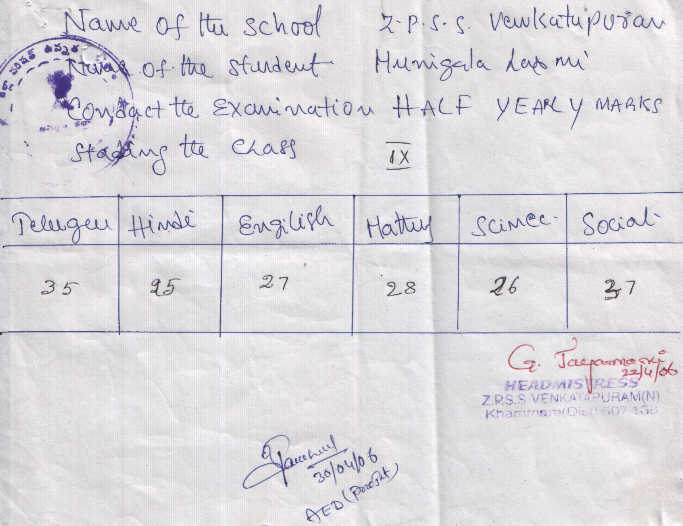 Name of the school Z.P.S.S. Venkatapuram
Name of the student Munigala Laxmi
Conduct the Examination HALF YEARLY MARKS
Stading the class IX
Telugu Hindi English Maths Science Social
35 25 27 28 26 37
22/4/06
HEADMISTRESS
Z.P.S.S VENKATAPURAM(N)
Khammam(Dist) 507 136
30/04/06
AED